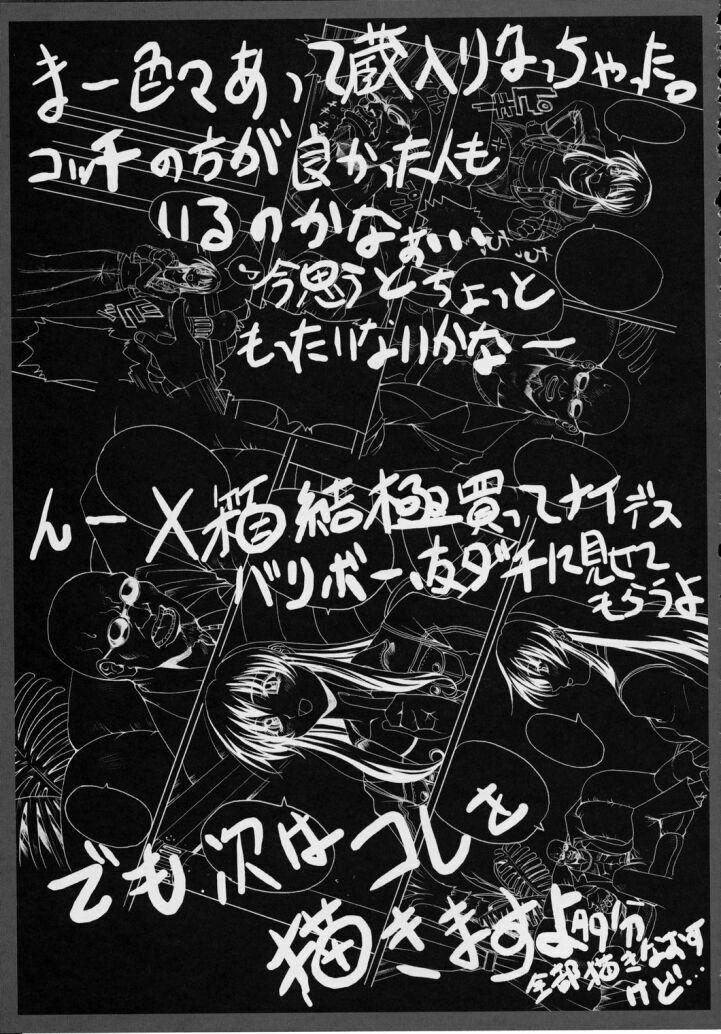 まー色々あって蔵入りなっちゃった。
コッチの方が良かった人も
いるのかなぁ…
今思うとちょっと
もったいないかなー
んーX箱結極買ってナイデス
バリボー、友ダチに見せて
もらうよ
でも次はコレを
描きますよ多分
全部描きなおす
けど…